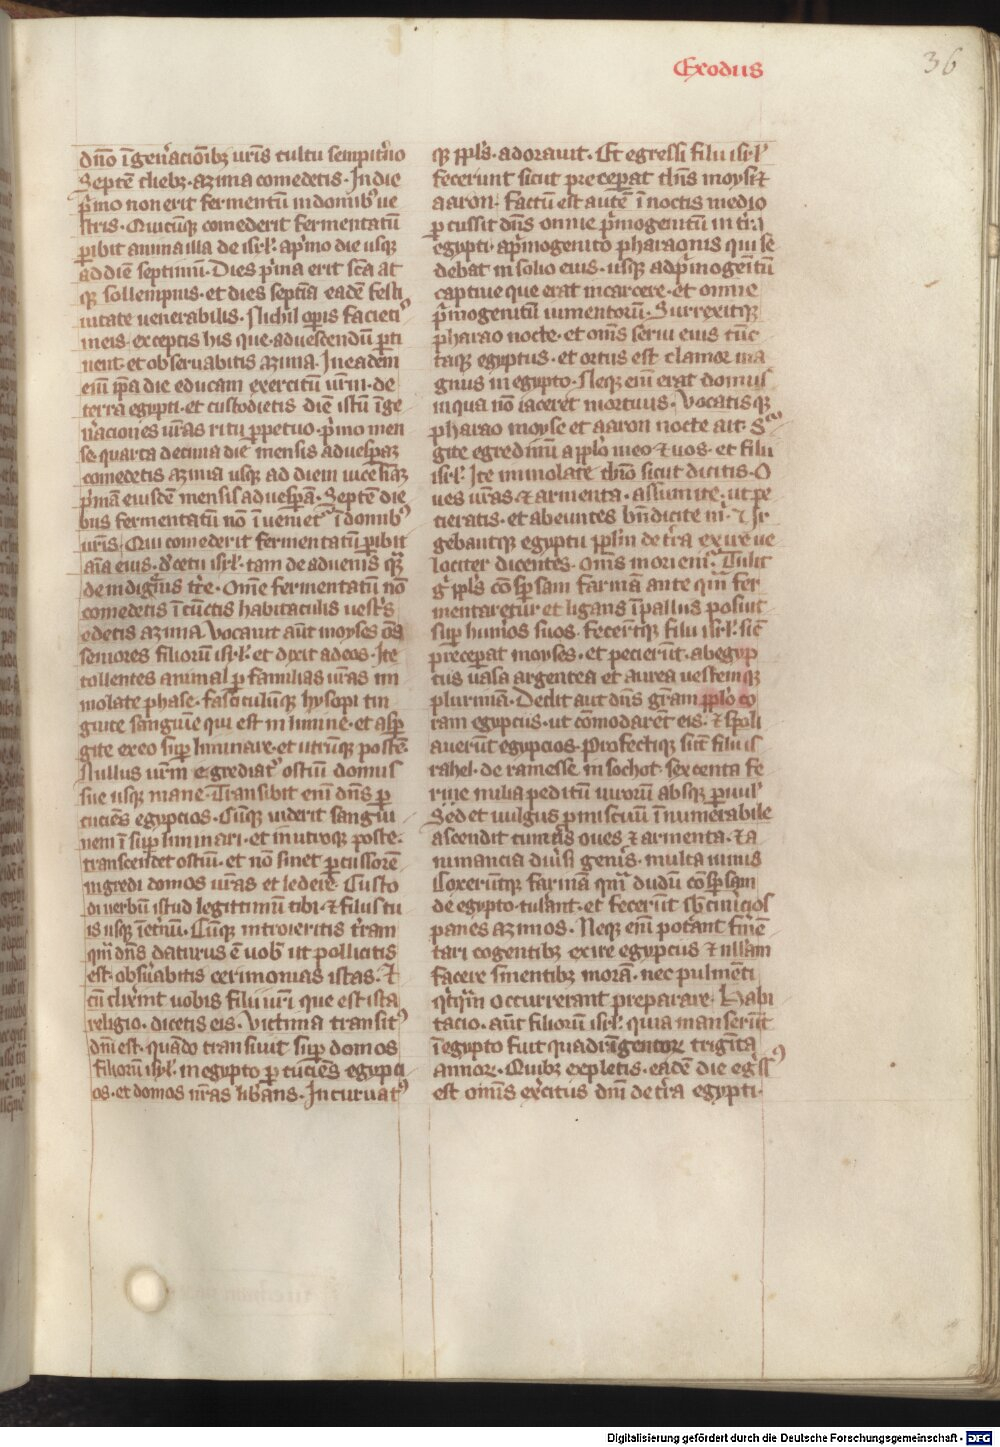 Exodus
36
dño ĩ gen̾acionibꝫ ur̃is cultu sempit̾no
Septẽ diebꝫ · azima comedetis · In die
p̾mo non erit fermentũ in domibꝰ ue
stris · Quicũqꝫ comederit fermentatũ
ꝑibit anima illa de isr̃l · a p̾mo die usqꝫ
ad diẽ septimũ · Dies p̾ma erit sc̃a at
qꝫ sollempnis · et dies septĩa eadẽ festi
uitate uenerabilis · Nichil oꝑis facietꝭ
in eis · exceptis his que · ad uescendũ ꝑti
nent · et obseruabitis azima · In eadem
enĩ ip̃a die educam exercitũ ur̃m · de
terra egypti · et custodietis diẽ istũ ĩ ge
n̾aciones ur̃as ritu ꝑpetuo · p̾mo men
se quarta decima die mensis ad uesꝑaꝫ
comedetis azima usqꝫ ad diem uicesĩaꝫ
p̾mã eiusdẽ mensis ad uesꝑã · Septẽ die
bus fermentatũ nõ ĩuenietꝰ ĩ domibꝰ
ur̃is · Qui comederit fermentatũ ꝑibit
aĩa eius · d̾ cetu isr̃l · tam de aduenis qᷓꝫ
de indigᷓnis tr̃e · Om̃e fermentatũ nõ
comedetis ĩ cũctis habitaculis uest̾s
edetis azima Vocauit aũt moyses om̃s
seniores filiorũ isr̃l · et dixit ad eos · Ite
tollentes animal ꝑ familias ur̃as im
molate phase · fasciculũqꝫ hysopi tin
guite sanguĩe qui est in limine · et asꝑ
gite ex eo suꝑ liminare · et utrũqꝫ postẽ
Nullus ur̃m egrediatꝰ ostiũ domus
sue usqꝫ mane · Transibit enĩ dñs ꝑ
cuciẽs egypcios · Cũqꝫ uiderit sangui
nem ĩ suꝑ liminari · et in utroqꝫ poste ·
transcendet ostiũ · et nõ sinet ꝑcussorẽ
ingredi domos ur̃as et ledere · Custo
di uerbũ istud legittimũ tibi · ⁊ filiis tu
is usqꝫ ĩ et̾nũ · Cũqꝫ introieritis t̾ram
qᷓm dñs daturus ẽ uobꝭ ut pollicitꝰ
est · obs̾uabitis cerimonias istas · Et
cũ dix̾int uobis filii ur̃i que est ista
religio · dicetis eis · Victima transitꝰ
dñi est · quãdo transiuit suꝑ domos
filiorũ isr̃l · in egypto ꝑcuciẽs egypci
os · et domos nr̃as lib̾ans · Incuruatꝰ
qꝫ ppl̃s · adorauit · Et egressi filii isr̃l
fecerunt sicut preceꝑat dñs moysi ⁊
aaron · Factũ est autẽ ĩ noctis medio
ꝑcussit dñs omne p̾mogenitũ in t̾ra
egypti · a p̾mogenito pharaonis qui se
debat in solio eius · usqꝫ ad p̾mogenitũ
captiue que erat in carcere · et omne
p̾mogenitũ iumentorũ · Surrexitqꝫ
pharao nocte · et om̃s serui eius cũc
taqꝫ egyptus · et ortus est clamor ma
gnus in egypto · Neqꝫ enĩ erat domus
in qua nõ iaceret mortuus · Vocatisqꝫ
pharao moyse et aaron nocte ait · Sur
gite egredimĩ a pplo̾ meo ⁊ uos · et filii
isr̃l · Ite immolate dño sicut dicitis · O
ues ur̃as ⁊ armenta · assumite · ut pe
tieratis · et abeuntes bñdicite m̾ · Vr
gebantqꝫ egyptii ppl̃m de t̾ra exire ue
lociter dicentes · Om̃s moriem̾ · Tulit
gͥ ppl̃s cõsꝑsam farinã ante qᷓm fer
mentaretur et ligans ĩ pallijs posuit
suꝑ hum̾os suos · fecerũtqꝫ filii isr̃l · sic̃
preceꝑat moyses · et pecierũt · ab egyp
ciis uasa argentea et aurea uestemqꝫ
plurimã · Dedit aut dñs gr̃am pplo̾ co
ram egypciis · ut cõmodarẽt eis · ⁊ spoli
auerũt egypcios · Profectiqꝫ sũt filii is
rahel · de ramesse in sochot · sexcenta fe
rme milia peditũ uirorũ absqꝫ ꝑuulꝭ
Sed et uulgus ꝓmiscuũ ĩnumerabile
ascendit cum eis oues ⁊ armenta · ⁊ a
nimancia diu̾si gen̾is · multa nimis
Coxerũtqꝫ farinã qᷓm dudũ cõsꝑsam
de egypto tulerant · et fecerũt sbcin̾icios
panes azimos · Neqꝫ enĩ pot̾ant f̾mẽ
tari cogentibꝫ exire egypciis ⁊ nullam
facere sinentibꝫ morã · nec pulmẽti
qͥcqᷓm occurrerant preparare · Habi
tacio · aũt filiorũ isr̃l · quia manserũt
ĩ egypto fuit quadringentoꝝ triginta
annoꝝ · Quibꝫ expletis · eadẽ die eg̾ssꝰ
est omnis ex̾citus dñi de t̾ra egypti ·
Digitalisierung gefördert durch die Deutsche Forschungsgemeinschaft - DFG